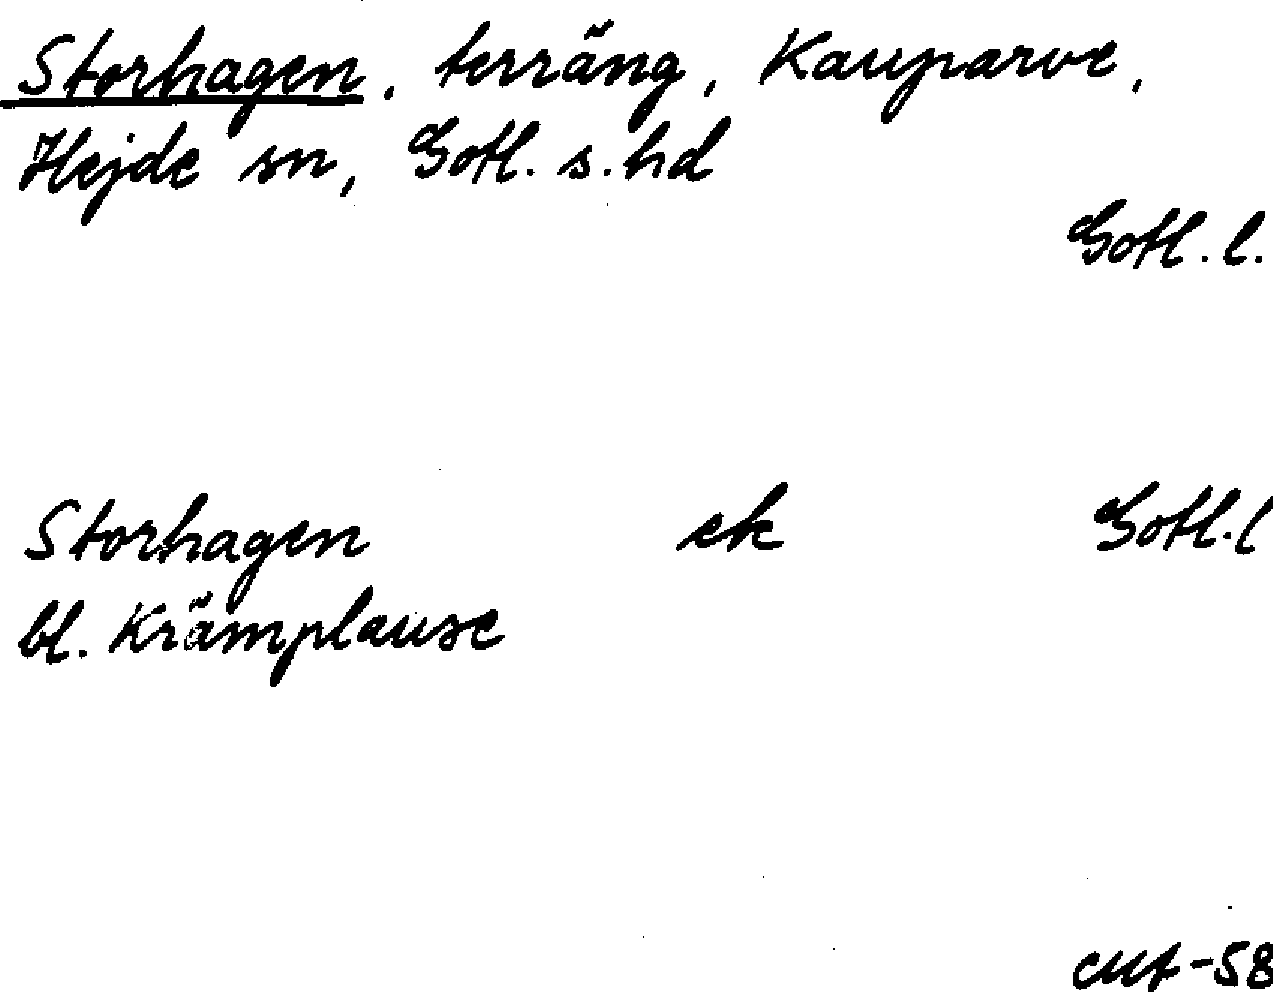 Storhagen, terräng, Kauparve,
Hejde sn, Gotl. s. hd
Gotl. l.
Storhagen ek Gotl. l
bl. Krämplause
-58